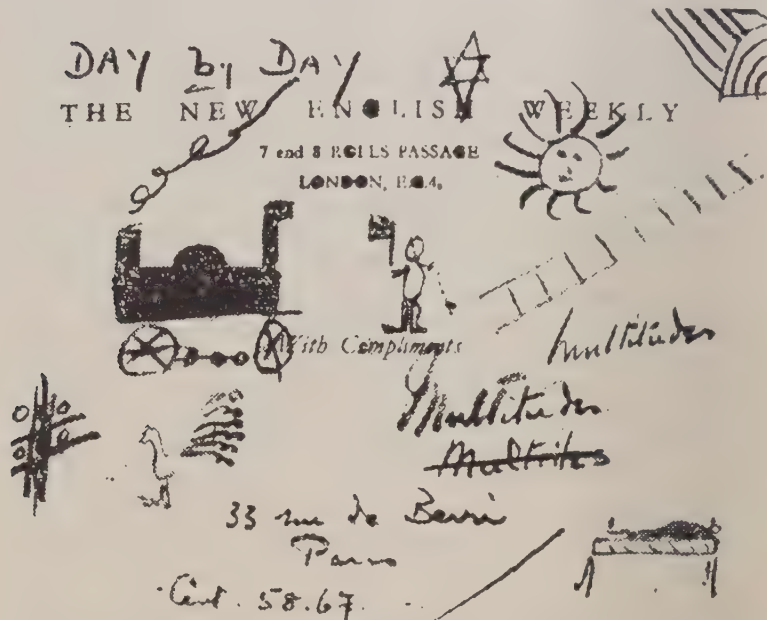 DAY by DAY
THE NEW ENGLISH WEEKLY
7 and 8 ROLLS PASSAGE
LONDON, E.C.4.
With Compliments
Multitudes
Multitudes
33 rue de Berri
Paris
58.67.